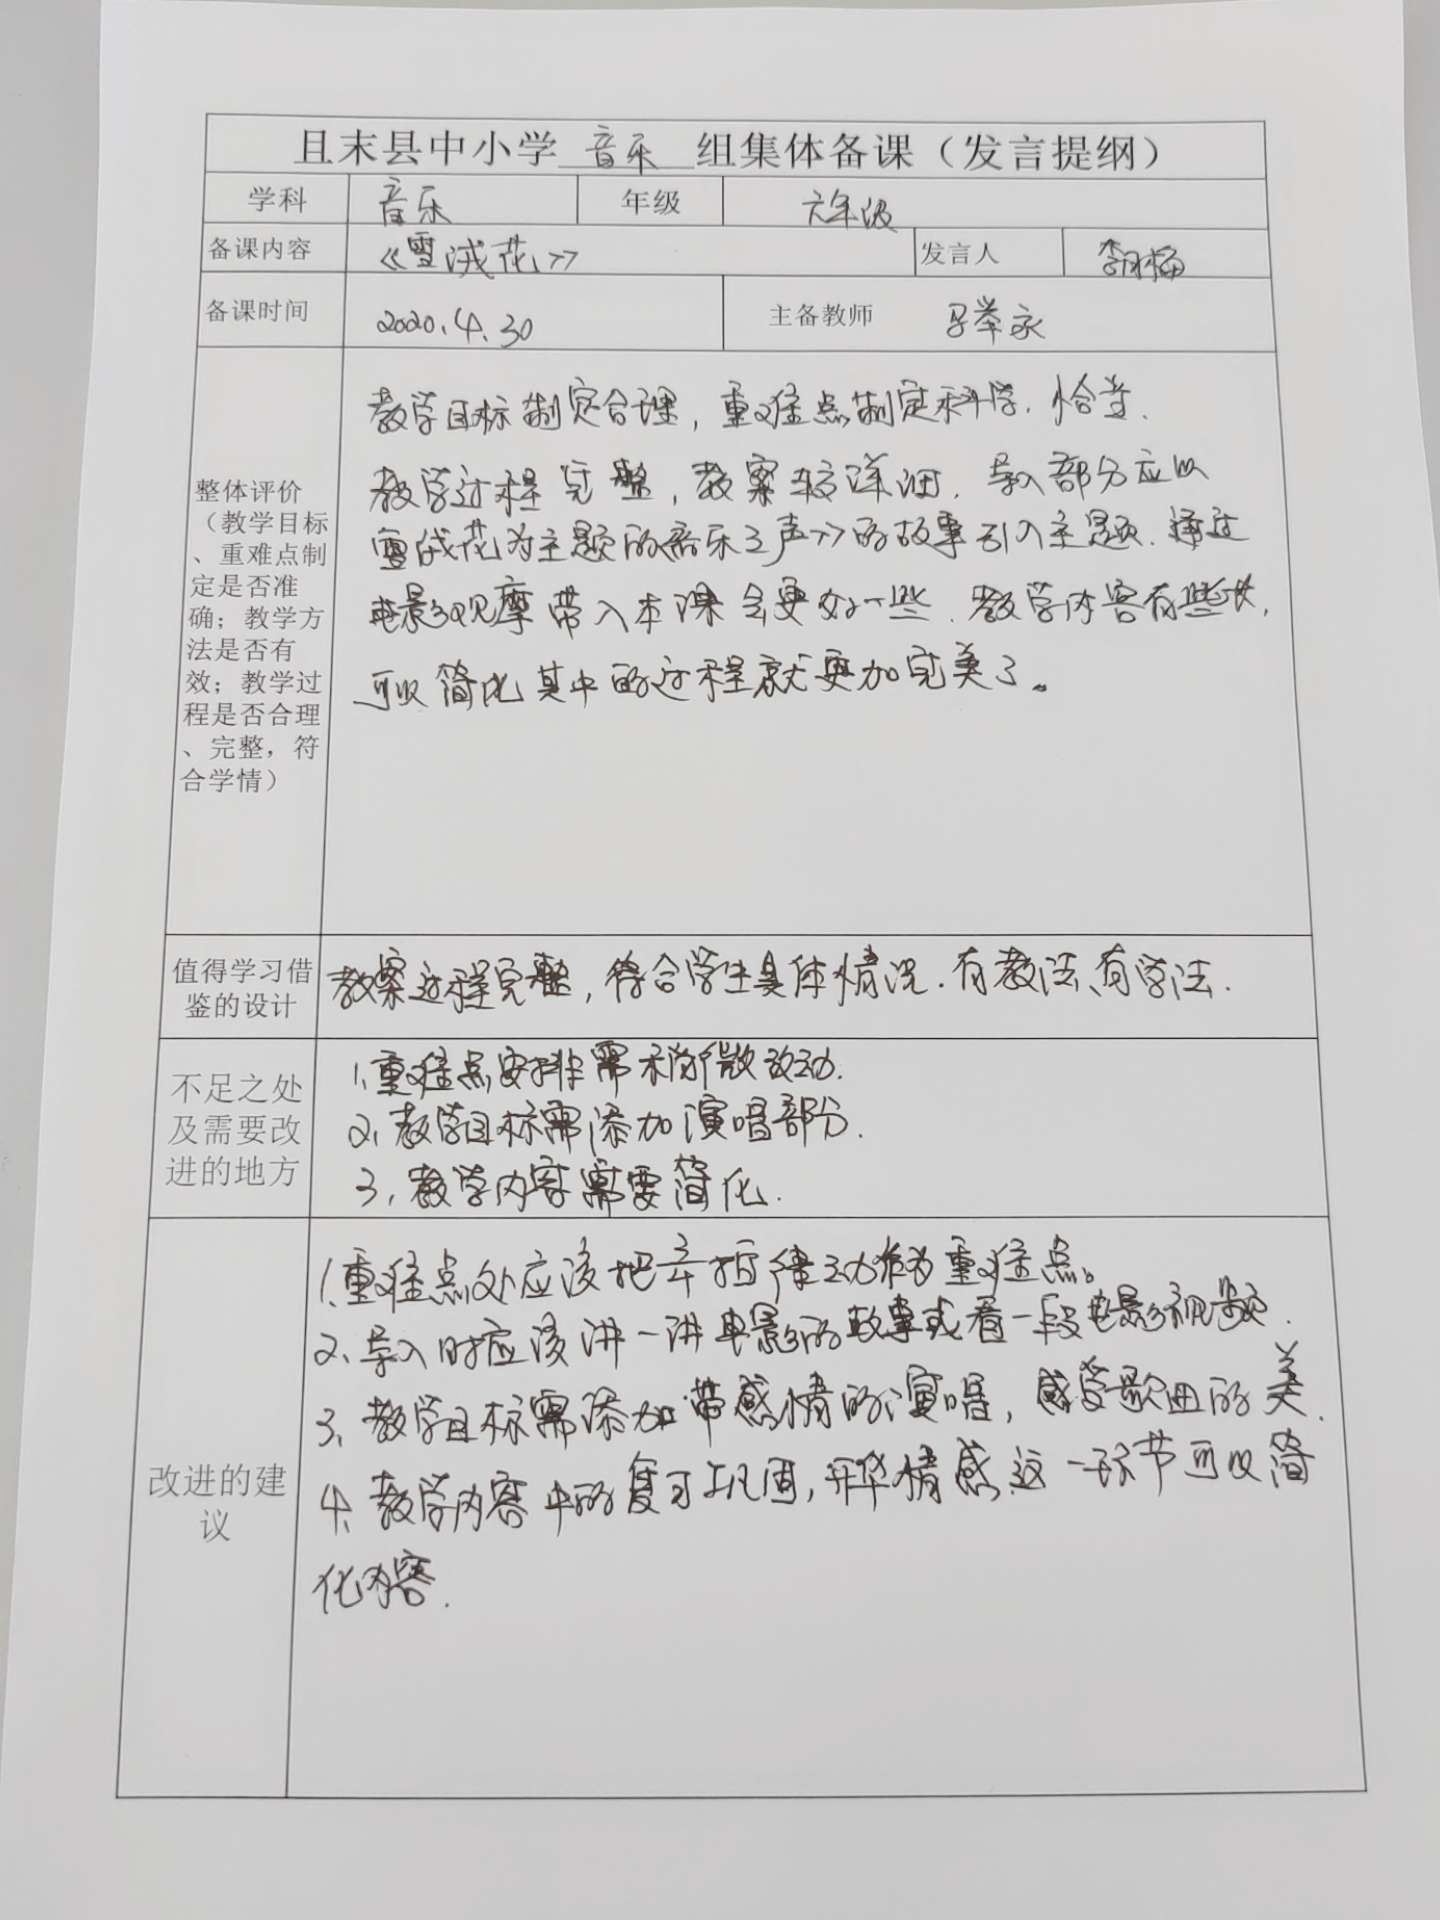 且末县中小学 音乐 组集体备课（发言提纲）
学科 音乐 年级 六年级
备课内容 《雪绒花》 发言人
备课时间 2020.4.30 主备教师
教学目标制定合理，重难点制定科学.恰当.
教学过程完整，教案较详细.导入部分应以
雪绒花为主题的音乐之声》的故事引入主题.通过
电影观摩带入本课会更好一些.教学内容有些长,
可以简化其中的过程就更加完美了。
整体评价
（教学目标
、重难点制
定是否准
确；教学方
法是否有
效；教学过
程是否合理
、完整，符
合学情）
值得学习借
鉴的设计
教案过程完整，符合学生具体情况.有教法、有学法.
不足之处
及需要改
进的地方
1.重难点安排需稍微改动.
2.教学目标需添加演唱部分.
3.教学内容需要简化.
改进的建
议
1.重难点处应该把 律动作为重难点。
2.导入时应该讲一讲电影的故事或看一段电影视频.
3.教学目标需添加带感情的演唱，感受歌曲的美.
4.教学内容中的复习巩固,升华情感这一环节可以简
化内容.